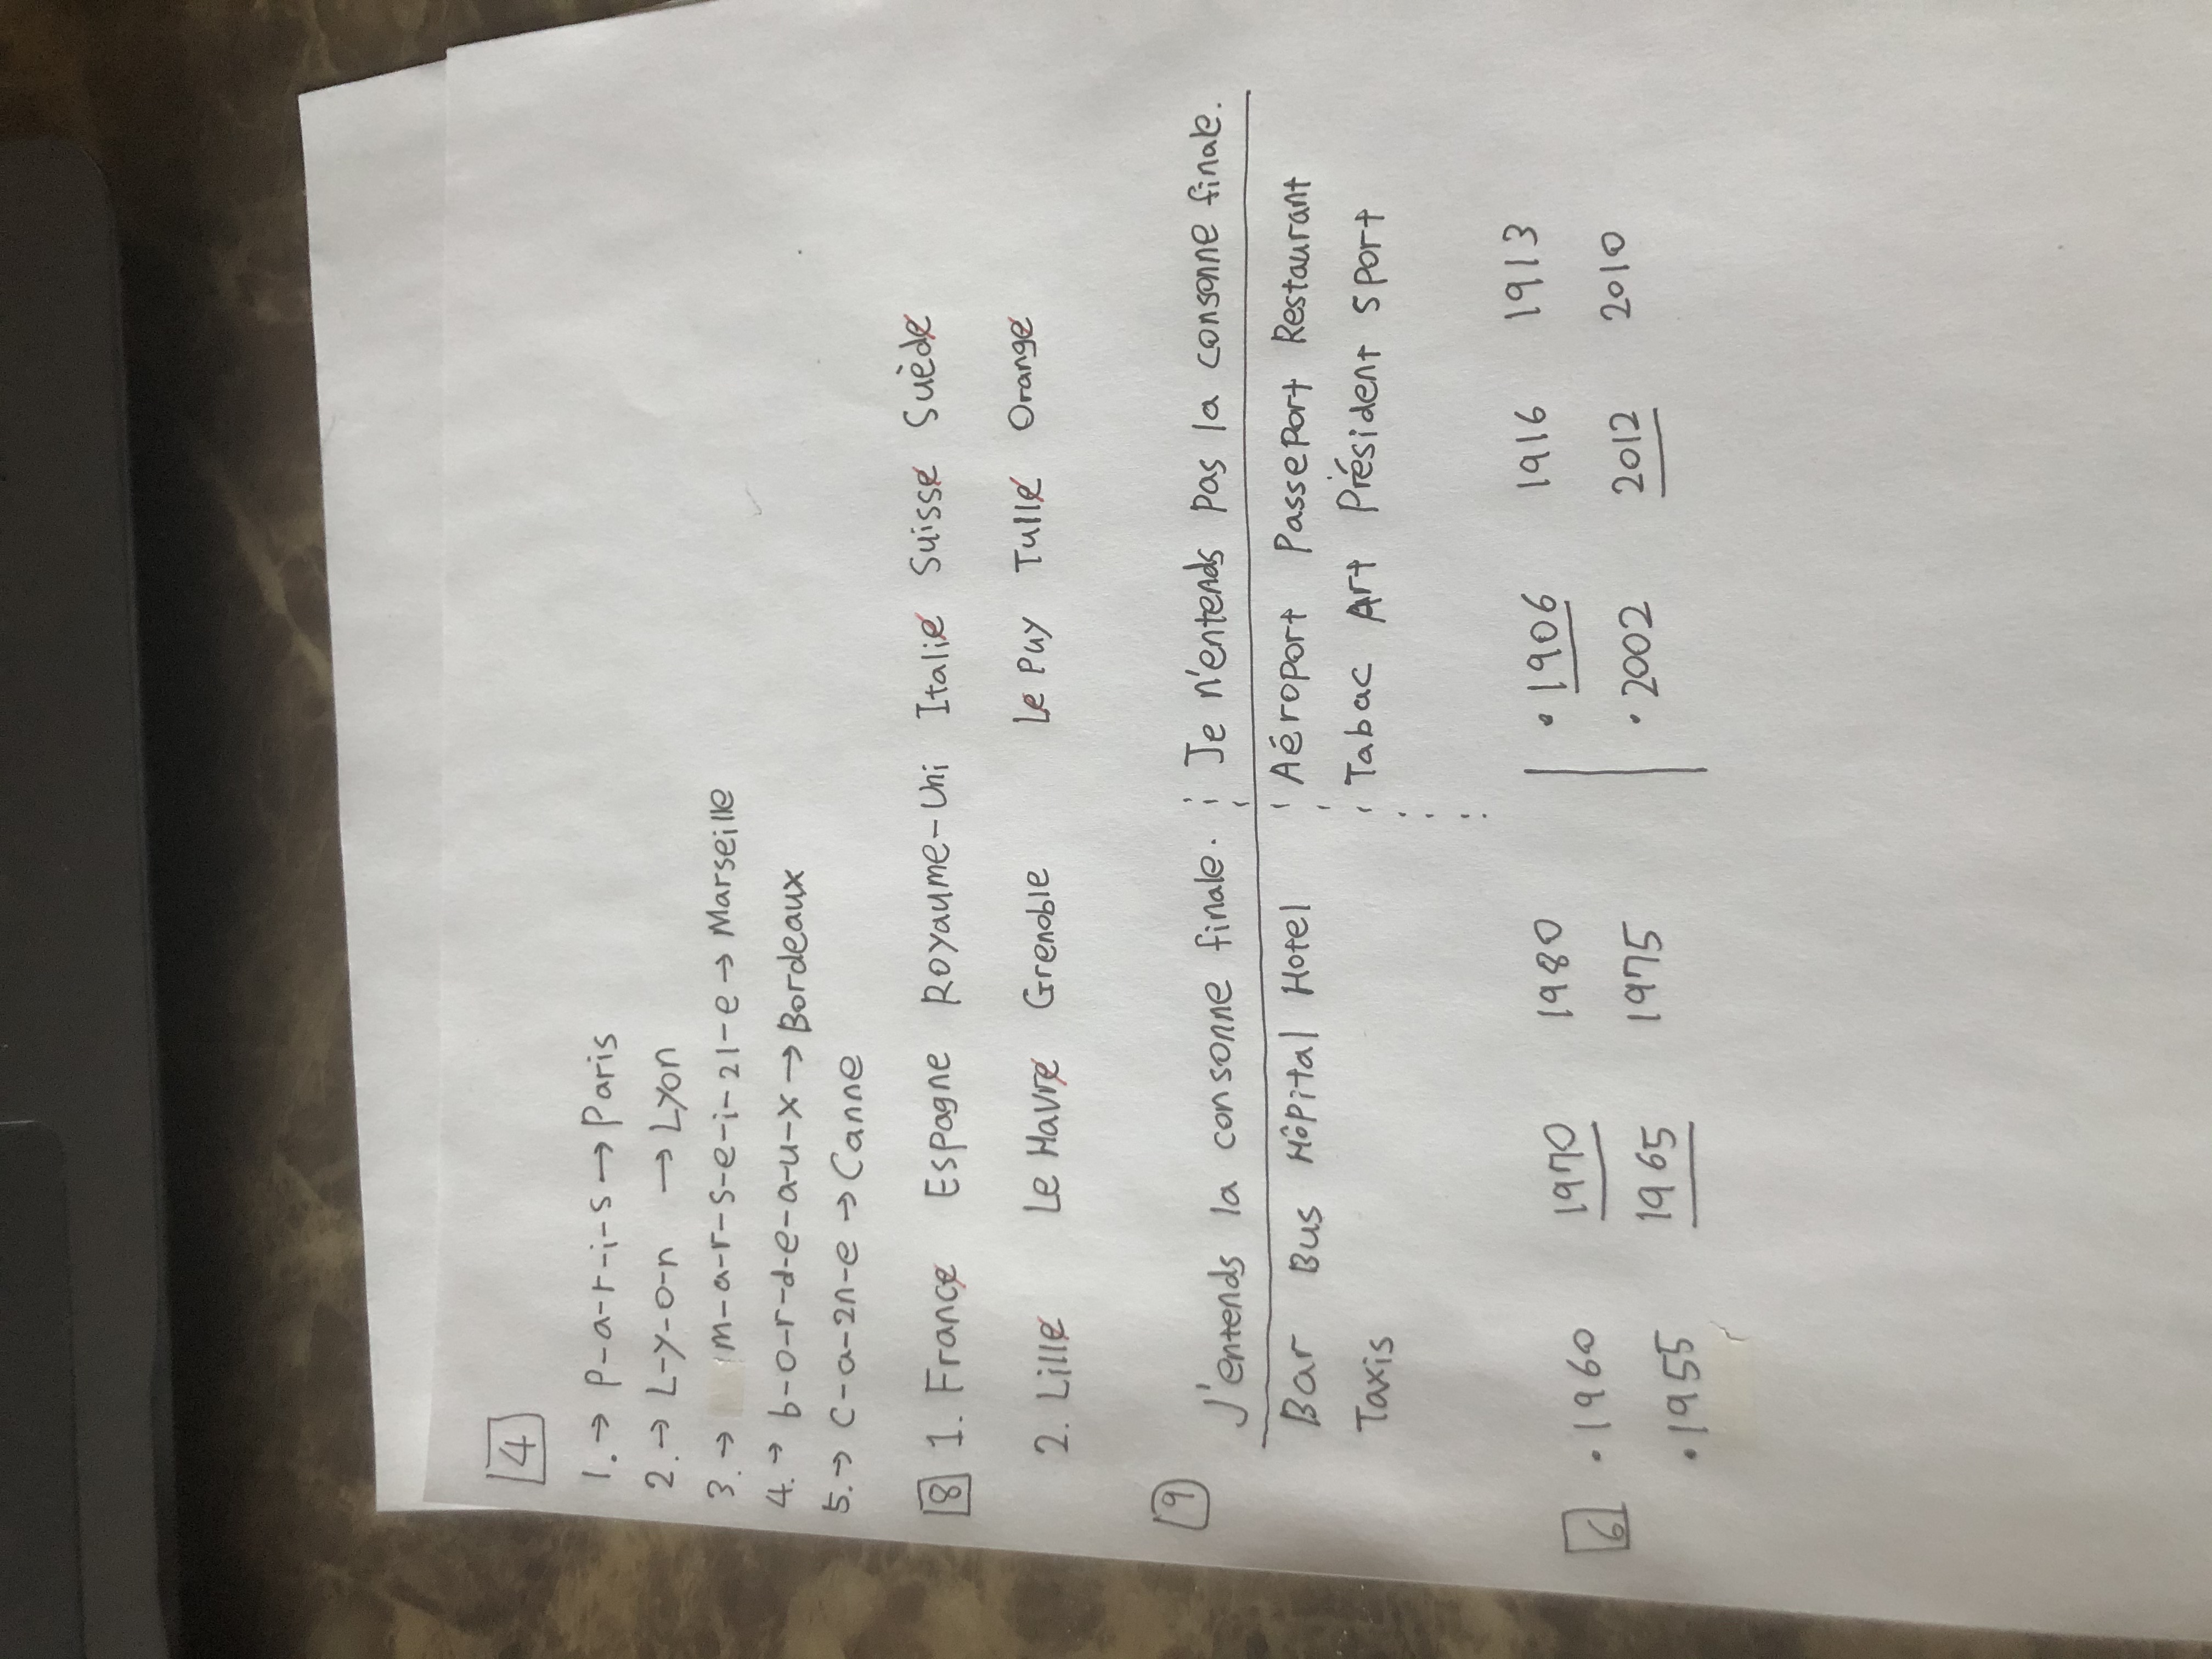 4
1. → p-a-r-i-s → Paris
2. → L-y-o-n → Lyon
3. → m-a-r-s-e-i-2l-e → Marseille
4. → b-o-r-d-e-a-u-x → Bordeaux
5. → c-a-2n-e → Canne
8 1. France Espagne Royaume-Uni Italie Suisse Suède
2. Lille Le Havre Grenoble Le Puy Tulle Orange
9
J'entends la consonne finale. Je n'entends pas la consonne finale.
Bar Bus Hôpital Hotel Aéroport Passeport Restaurant
Taxis Tabac Art Président Sport
6 • 1960 1970 1980 • 1906 1916 1913
• 1955 1965 1975 • 2002 2012 2010